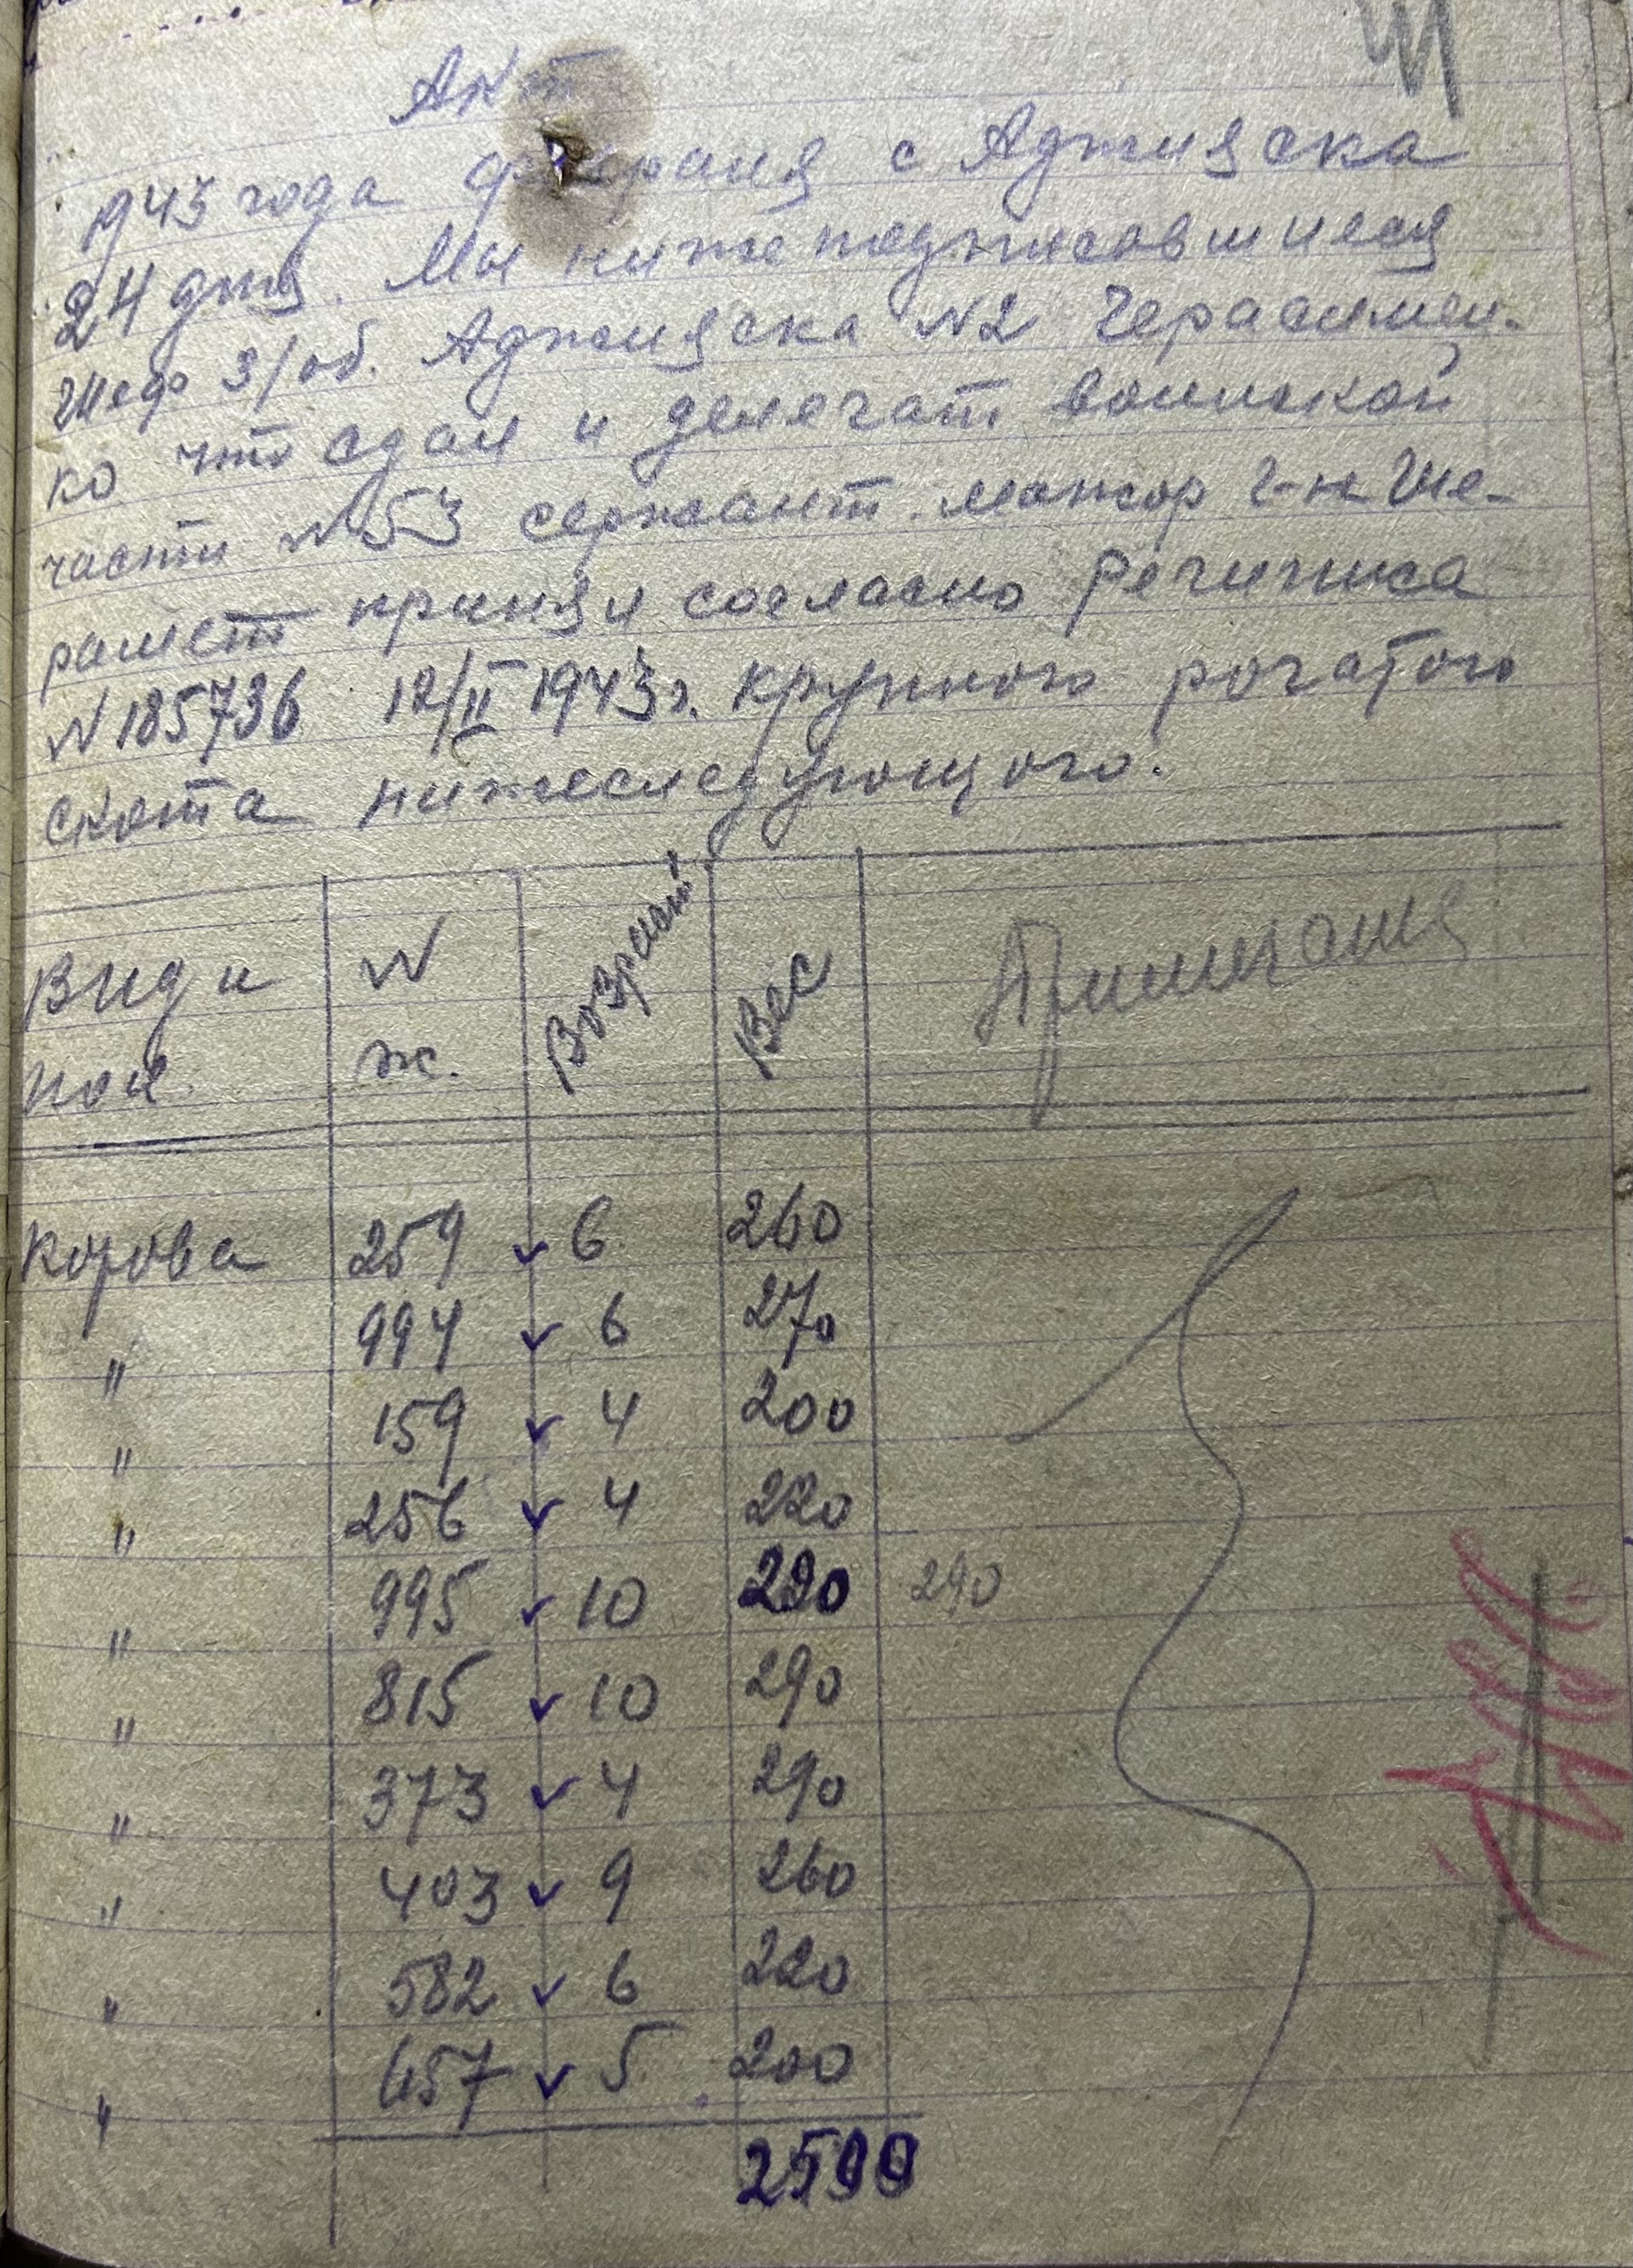 41
Акт
1943 года февраля с Аджияска
24 дня. Мы нижеподписавшиеся
Шеф З/об. Аджияска №2 Герасимен-
ко что сдал и делегат воинской
части №53 сержант. мажор г-н Ше-
рамет принял согласно Речиписа
№185736 12/II 1943г. крупного рогатого
скота нижеследующого.
Вид и пол. № ж. Возраст. Вес Примечания
Корова 259 ✓ 6 260
" 994 ✓ 6 270
" 159 ✓ 4 200
" 256 ✓ 4 220
" 995 ✓ 10 290 290
" 815 ✓ 10 290
" 373 ✓ 4 290
" 403 ✓ 9 260
" 582 ✓ 6 220
" 657 ✓ 5 200
2500